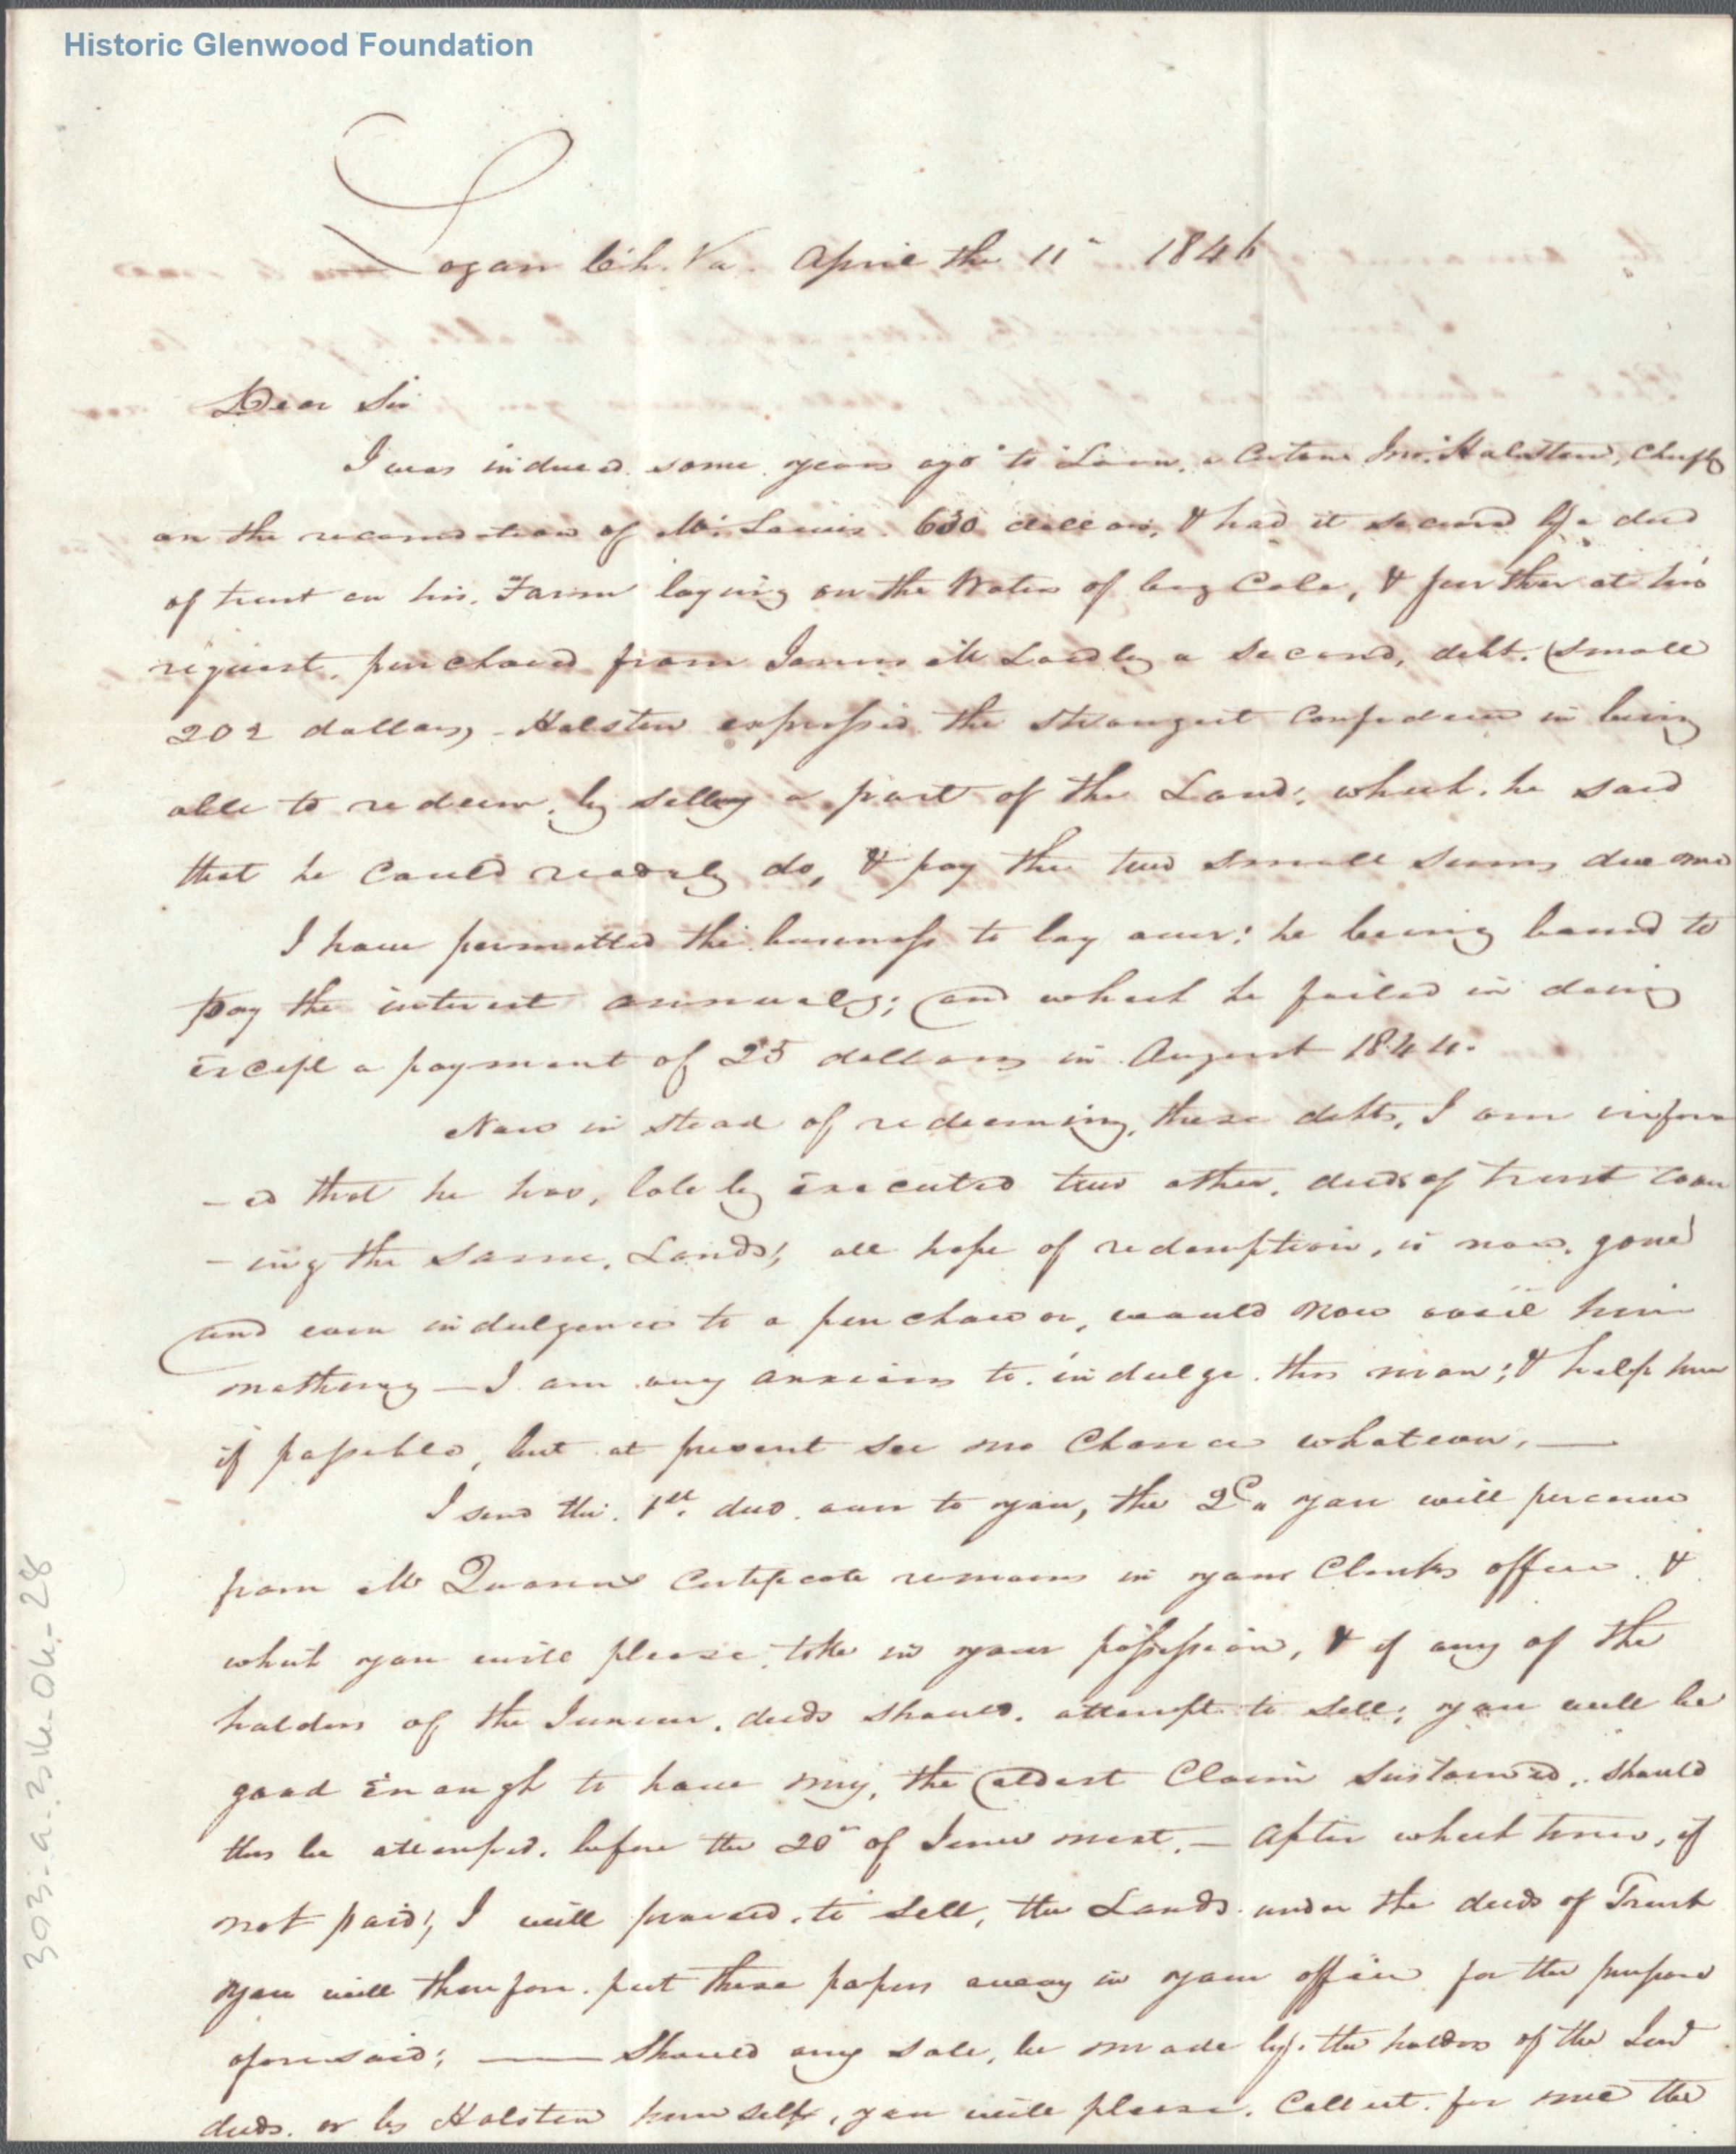 Historic Glenwood Foundation
Logan C.h. Va. April the 11" 1846
Dear Sir
I was induced some years ago to Loan, a Certain Jno. Halsten, Chiefly
on the recomedtion of Mr. Lewis. 630 dollars, & had it secured by a deed
of trust on his, Farm laying on the Waters of big Cole, & further at his
request, purchased from James M Laidley a second, debt. (small
202 dollars, - Halsten expressed the strongest Confidence in being
able to redeem, by selling a part of the Land; which, he said
that he could readily do, & pay the two small sums due me
I have permitted the business to lay over; he being bound to
pay the interest annualy; and which he failed in doing
Except a payment of 25 dollars in August 1844.
Now in stead of redeeming, these debts, I am inform
- ed that he has, lately Executed two other, deeds of trust Cover
- ing the same, Lands; all hope of redemption, is now, gone
and even indulgence to a purchaser, would now avail him
nothing — I am very anxious to indulge this man; & help him
if possible, but at present see no Chance whatever, —
I send the 1st. deed over to you, the 2d. you will perceive
from Mr Quarriers Certificate remains in your Clerks office, &
which you will please, take in your possession, & if any of the
holders of the Junior, deeds should, attempt to sell; you will be
good Enough to have my, the oldest Claim sustained,. should
this be attempted, before the 20" of June next. — After which time, if
not paid; I will proceed, to sell, the Lands under the deeds of Trust
you will therefore put these papers away in your office for the purpose
aforesaid; — Should any sale, be made by, the holders of the
deeds, or by Halsten himself, you will please, Collect, for me the
303-a-314-04-28